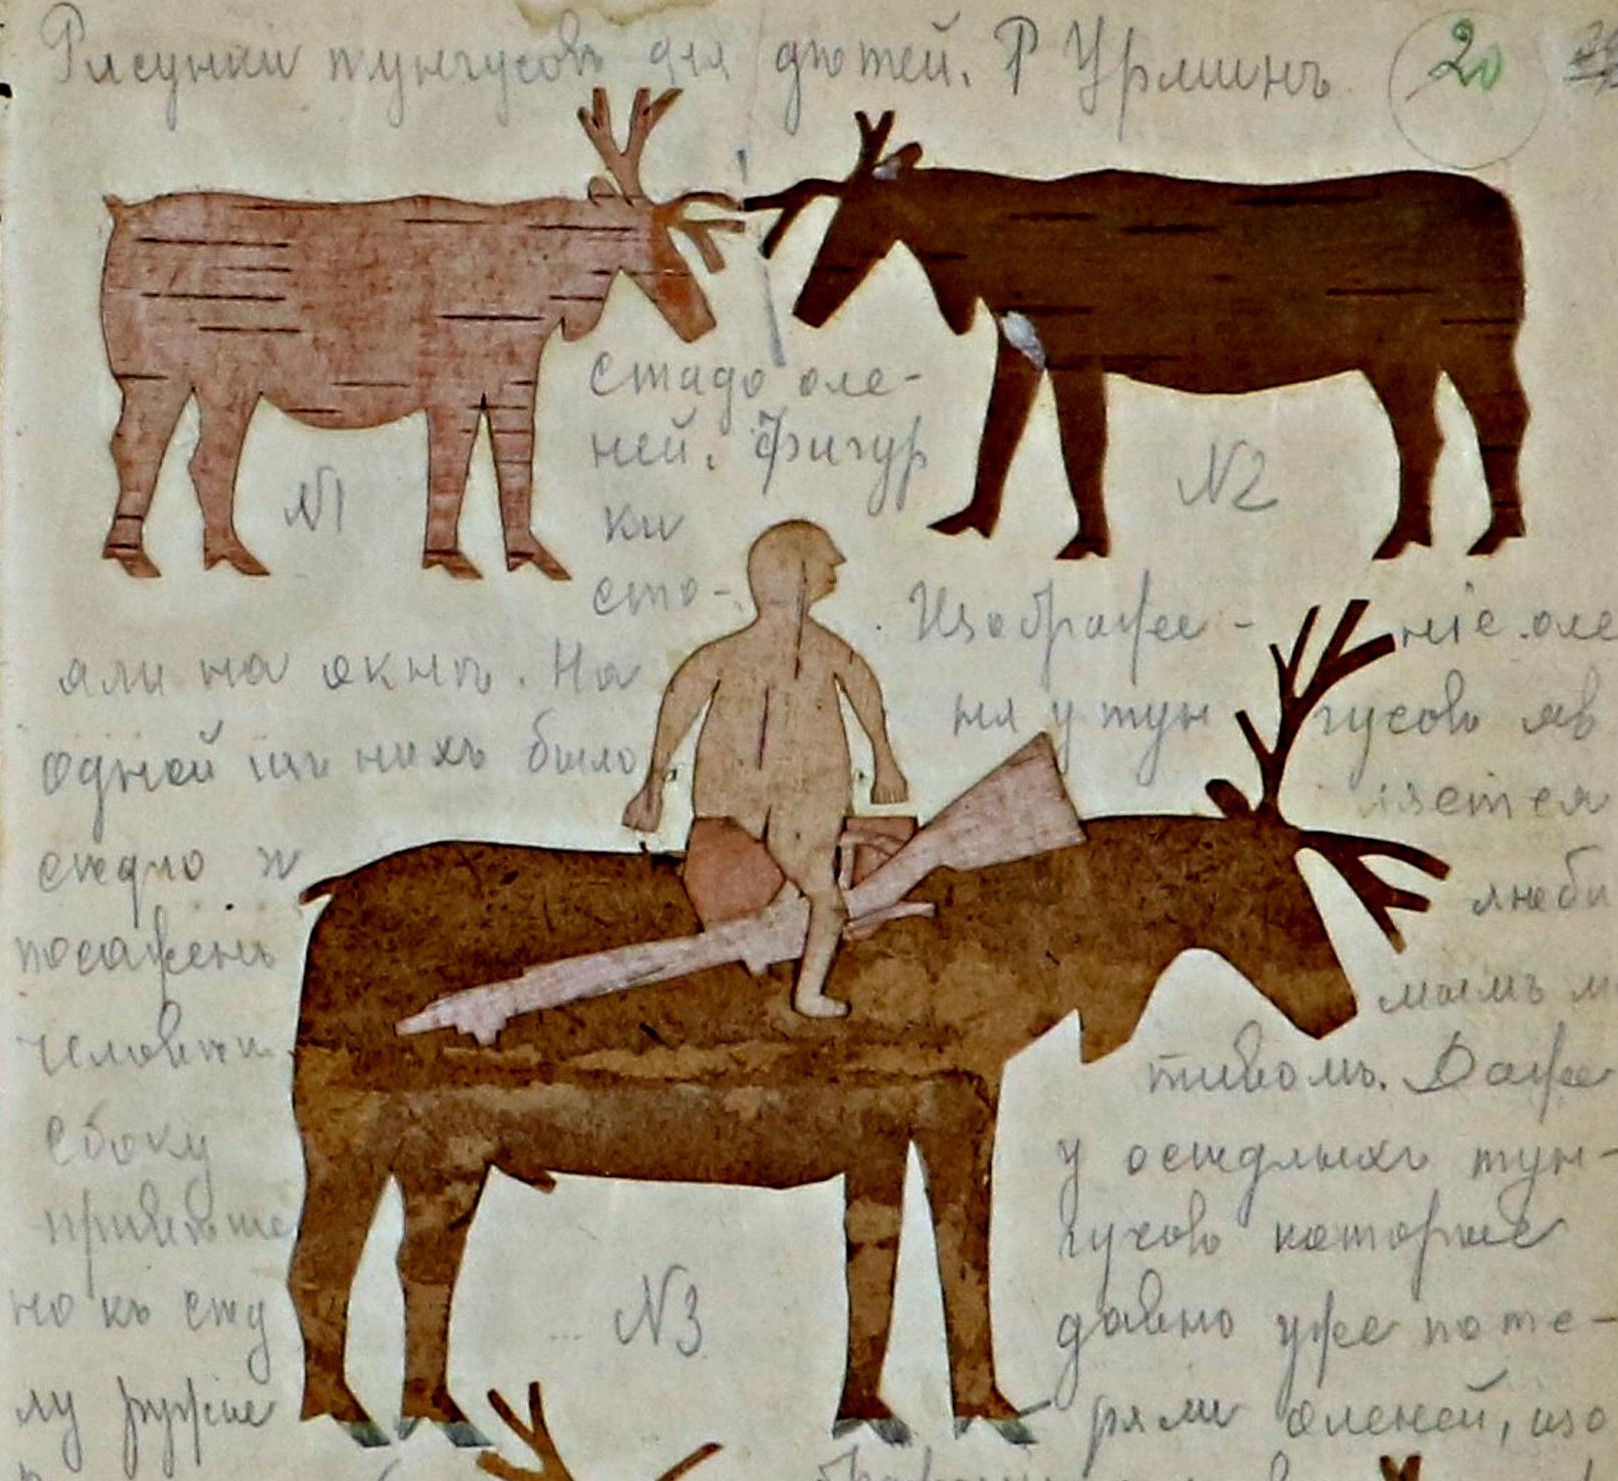 Рисунки тунгусовъ для дѣтей. Р Урминъ
20
№1
№2
стадо оле-
ней. Фигур
ки
сто-
яли на окнѣ. На
одной изъ нихъ было
сѣдло и
посаженъ
человѣкъ
сбоку
привѣше
но къ сѣд
лу ружье
№3
Изображе- ніе оле
ня у тун гусовъ яв
ляется
люби
мымъ м
тивомъ. Даже
у осѣдлыхъ тун-
гусовъ которые
давно уже поте-
ряли оленей, изо